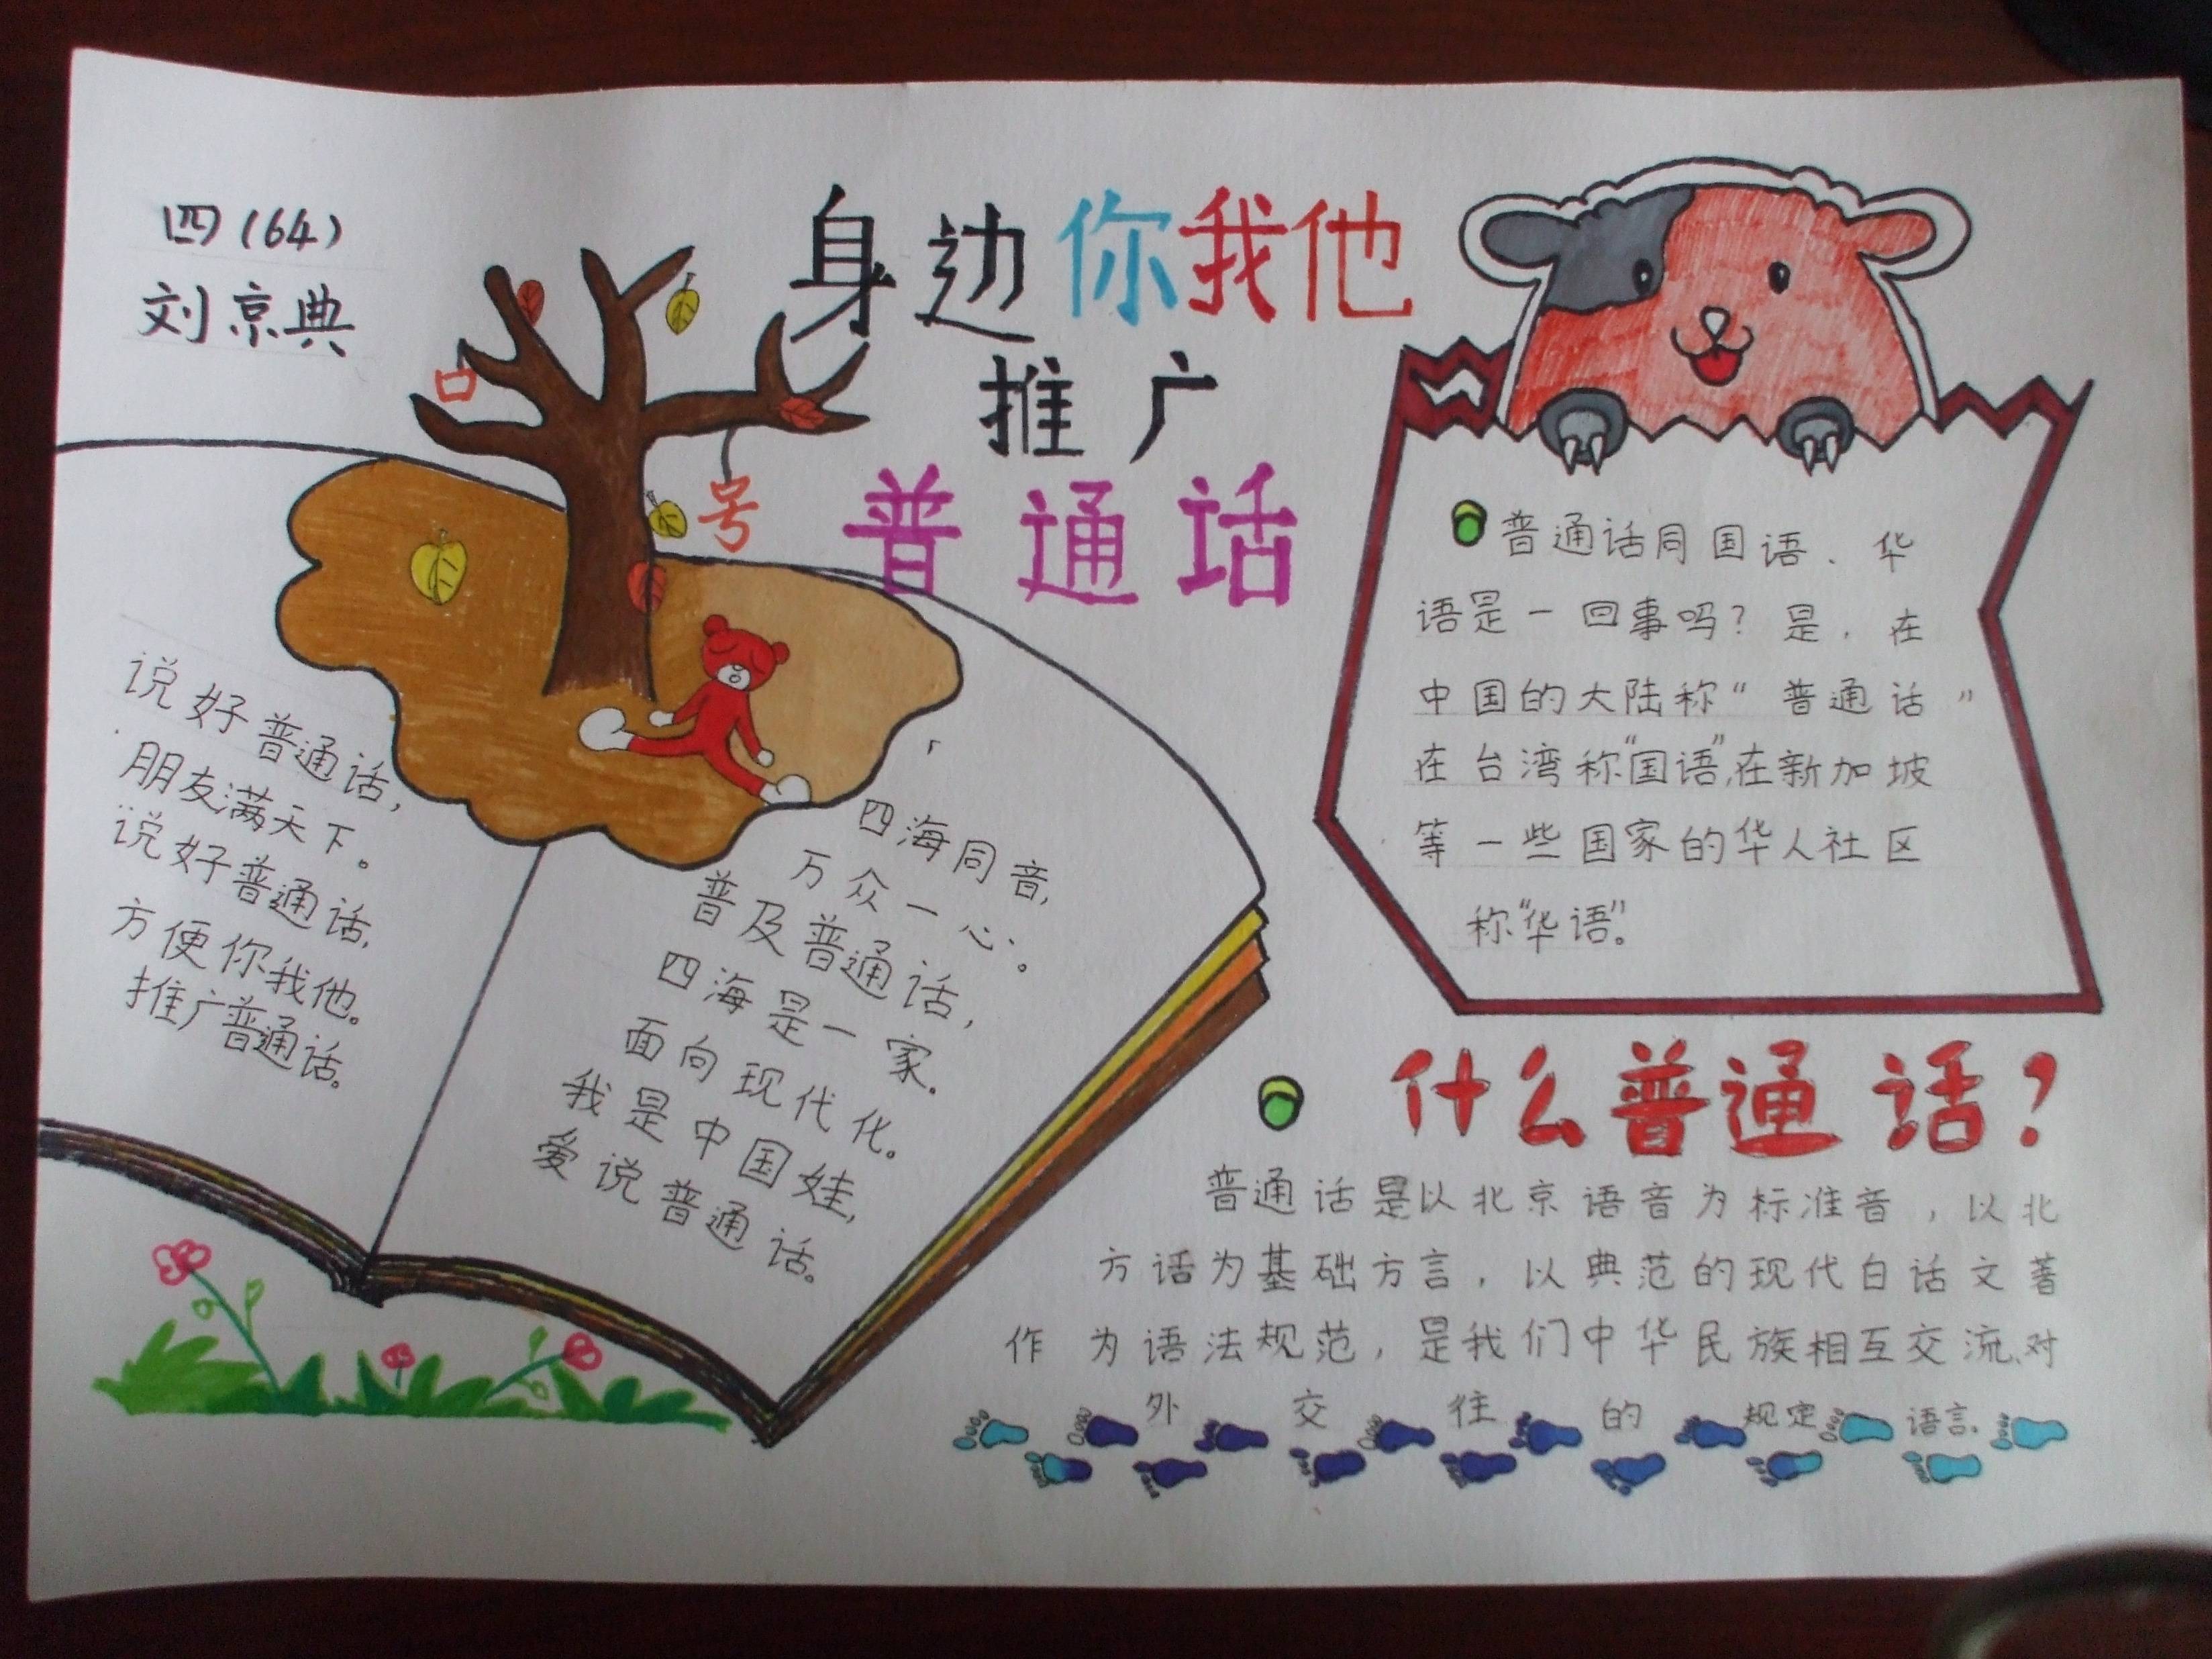 四(64)
刘京典
身边你我他
推广
普通话
口
号
说好普通话,
朋友满天下。
说好普通话,
方便你我他。
推广普通话。
四海同音,
万众一心。
普及普通话,
四海是一家.
面向现代化。
我是中国娃,
爱说普通话。
普通话同国语、华
语是一回事吗?是,在
中国的大陆称“普通话”
在台湾称“国语”,在新加坡
等一些国家的华人社区
称“华语”。
什么普通话?
普通话是以北京语音为标准音,以北
方话为基础方言,以典范的现代白话文著
作为语法规范,是我们中华民族相互交流、对
外交往的规定语言.